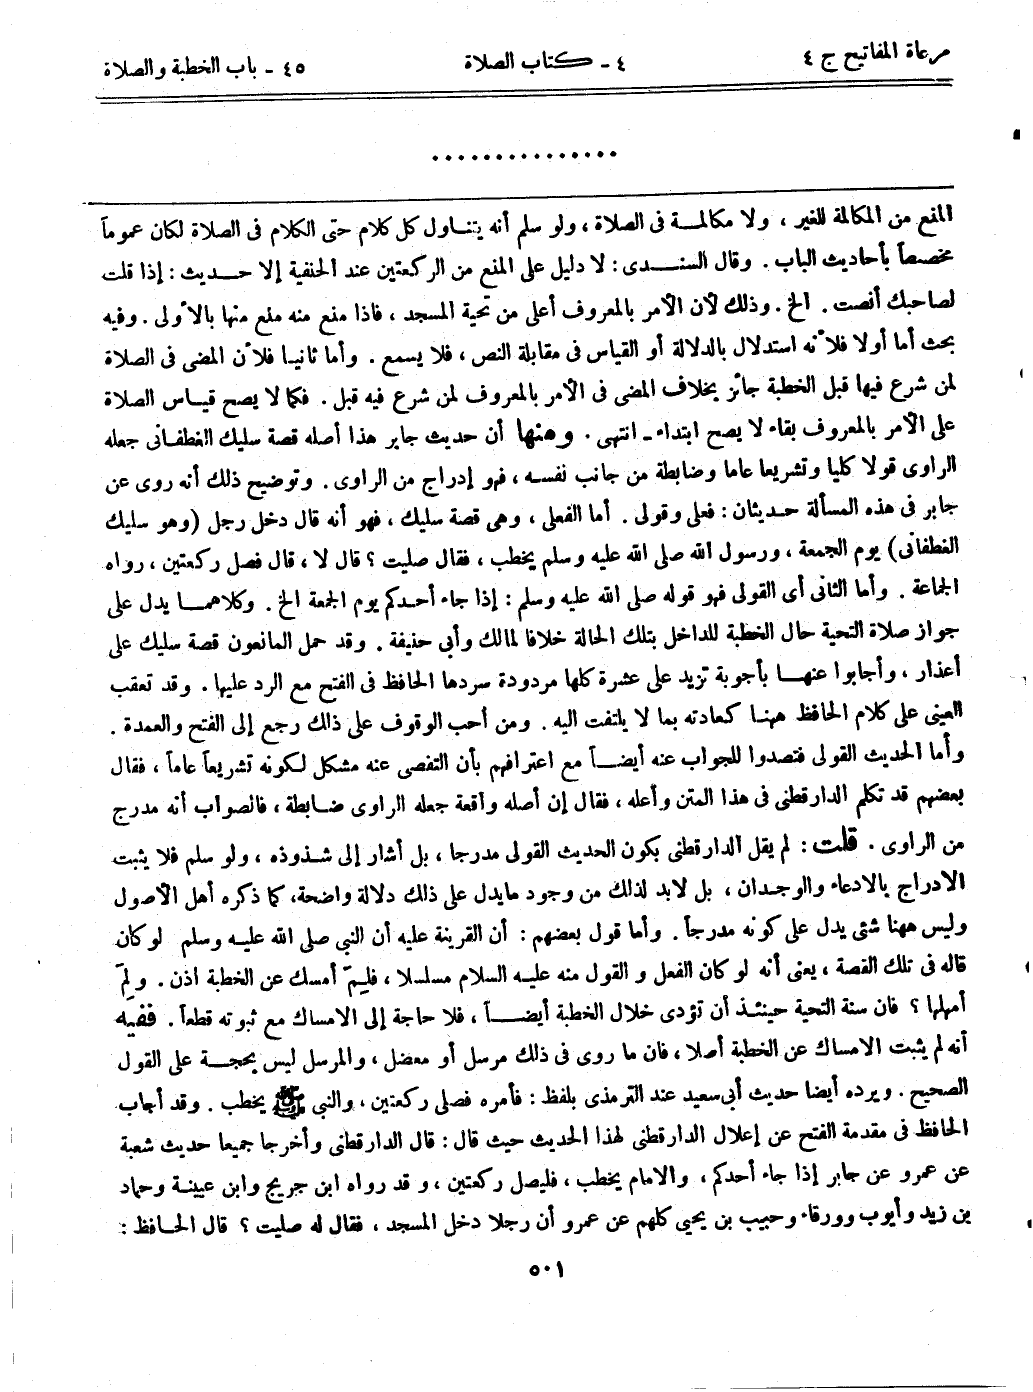 مرعاة المفاتيح ج ٤ ٤ ـ كتاب الصلاة ٤٥ ـ باب الخطبة والصلاة
...............
المنع من المكالمة للغير ، ولا مكالمـة فى الصلاة ، ولو سلم أنه يتنـاول كل كلام حتى الكلام فى الصلاة لكان عموماً
مخصصاً بأحاديث الباب . وقال السنـدى : لا دليل على المنع من الركعتين عند الحنفية إلا حـديث : إذا قلت
لصاحبك أنصت . الخ . وذلك لأن الأمر بالمعروف أعلى من تحية المسجد ، فاذا منع منه منع منها بالأولى . وفيه
بحث أما أولا فلأنه استدلال بالدلالة أو القياس فى مقابلة النص ، فلا يسمع . وأما ثانيـا فلأن المضى فى الصلاة
لمن شرع فيها قبل الخطبة جائز بخلاف المضى فى الأمر بالمعروف لمن شرع فيه قبل . فكما لا يصح قيـاس الصلاة
على الأمر بالمعروف بقاء لا يصح ابتداء ـ انتهى . ومنها أن حديث جابر هذا أصله قصة سليك الغطفـانى جعله
الراوى قولا كليا وتشريعا عاما وضابطة من جانب نفسـه ، فهو إدراج من الراوى . وتوضيح ذلك أنه روى عن
جابر فى هذه المسألة حـديثان : فعلى وقولى . أما الفعلى ، وهى قصة سليك ، فهو أنه قال دخل رجل (وهو سليك
الغطفانى) يوم الجمعة ، ورسول الله صلى الله عليه وسلم يخطب ، فقال صليت ؟ قال لا ، قال فصل ركعتين ، رواه
الجماعة . وأما الثانى أى القولى فهو قوله صلى الله عليه وسلم : إذا جاء أحدكم يوم الجمعة الخ . وكلاهمـا يدل على
جواز صلاة التحية حال الخطبة للداخل بتلك الحالة خلافا لمالك وأبي حنيفة . وقد حمل المانعون قصة سليك على
أعذار ، وأجابوا عنهـا بأجوبة تزيد على عشرة كلها مردودة سردها الحافظ فى الفتح مع الرد عليها . وقد تعقب
العينى على كلام الحافظ ههنـا كعادته بما لا يلتفت اليه . ومن أحب الوقوف على ذلك رجع إلى الفتح والعمدة .
وأما الحديث القولى فتصدوا للجواب عنه أيضـاً مع اعترافهم بأن التفصى عنه مشكل لـكونه تشريعاً عاماً ، فقال
بعضهم قد تكلم الدارقطنى فى هذا المتن وأعله ، فقال إن أصله واقعة جعله الراوى ضـابطة ، فالصواب أنه مدرج
من الراوى . قلت : لم يقل الدارقطنى بكون الحديث القولى مدرجا ، بل أشار إلى شـذوذه ، ولو سلم فلا يثبت
الادراج بالادعاء والوجـدان ، بل لابد لذلك من وجود مايدل على ذلك دلالة واضحة، كما ذكره أهل الأصول
وليس ههنا شئى يدل على كونه مدرجاً . وأما قول بعضهم : أن القرينة عليه أن النبي صلى الله عليـه وسلم لو كان
قاله فى تلك القصة ، يعنى أنه لو كان الفعل و القول منه عليـه السلام مسلسلا ، فلِـمَ أمسك عن الخطبة اذن . ولِمَ
أمهلها ؟ فان سنة التحية حينئـذ أن تؤدى خلال الخطبة أيضـاً ، فلا حاجة إلى الامساك مع ثبوته قطعاً . ففيه
أنه لم يثبت الامساك عن الخطبة أصلا ، فان ما روى فى ذلك مرسل أو معضل ، والمرسل ليس بحجـة على القول
الصحيح . ويرده أيضا حديث أبى سعيد عند الترمذى بلفظ : فأمره فصلى ركعتين ، والنبي ﷺ يخطب . وقد أجاب
الحافظ فى مقدمة الفتح عن إعلال الدارقطنى لهذا الحديث حيث قال : قال الدارقطنى وأخرجا جميعا حديث شعبة
عن عمرو عن جابر إذا جاء أحدكم ، والامام يخطب ، فليصل ركعتين ، و قد رواه ابن جريج وابن عيينـة وحماد
بن زيد وأيوب وورقاء وحبيب بن يحيى كلهم عن عمرو أن رجلا دخل المسجد ، فقال له صليت ؟ قال الحـافظ :
٥٠١